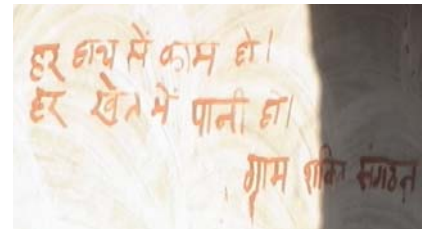 हर हाथ में काम हो।
हर खेत में पानी हो।
ग्राम शक्ति संगठन